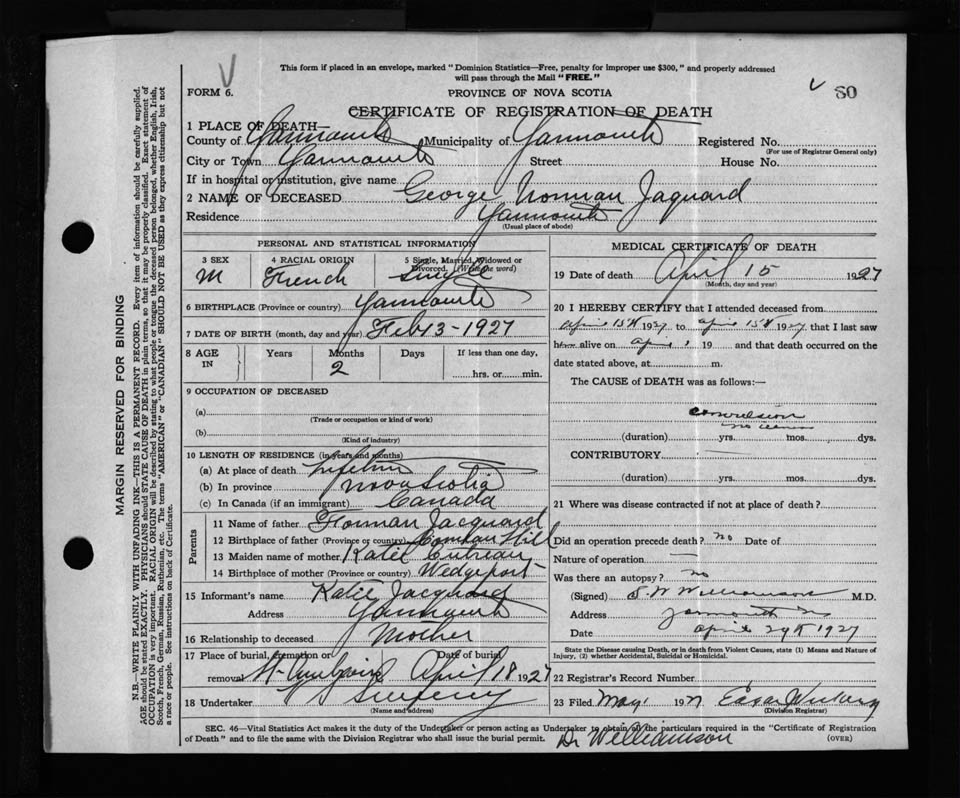 This form if placed in an envelope, marked "Dominion Statistics—Free, penalty for improper use $300," and properly addressed
will pass through the Mail "FREE."
FORM 6.
PROVINCE OF NOVA SCOTIA
80
CERTIFICATE OF REGISTRATION OF DEATH
1 PLACE OF DEATH—
County of Yarmouth Municipality of Yarmouth Registered No.
(For use of Registrar General only)
City or Town Yarmouth Street House No.
If in hospital or institution, give name
2 NAME OF DECEASED George Norman Jaquard
Residence Yarmouth
(Usual place of abode)
PERSONAL AND STATISTICAL INFORMATION
3 SEX 4 RACIAL ORIGIN 5 Single, Married, Widowed or
Divorced. (Write the word)
M French Single
6 BIRTHPLACE (Province or country) Yarmouth
7 DATE OF BIRTH (month, day and year) Feb 13-1927
8 AGE IN Years Months Days If less than one day,
2 hrs. or min.
9 OCCUPATION OF DECEASED
(a)
(Trade or occupation or kind of work)
(b)
(Kind of industry)
10 LENGTH OF RESIDENCE (in years and months)
(a) At place of death lifetime
(b) In province Nova Scotia
(c) In Canada (if an immigrant) Canada
Parents
11 Name of father Norman Jacquard
12 Birthplace of father (Province or country) Comeau Hill
13 Maiden name of mother Katie
14 Birthplace of mother (Province or country) Wedgeport
15 Informant's name Katie Jacquard
Address Yarmouth
16 Relationship to deceased Mother
17 Place of burial, cremation or removal Date of burial
April 18 1927
18 Undertaker Sweeny
(Name and address)
MEDICAL CERTIFICATE OF DEATH
19 Date of death April 15 1927
(Month, day and year)
20 I HEREBY CERTIFY that I attended deceased from
April 15th 1927 to April 15th 1927 that I last saw
h alive on April 19 and that death occurred on the
date stated above, at m.
The CAUSE of DEATH was as follows:—
convulsion
(duration) yrs. mos. dys.
CONTRIBUTORY
(duration) yrs. mos. dys.
21 Where was disease contracted if not at place of death?
Did an operation precede death? no Date of
Nature of operation
Was there an autopsy? no
(Signed) S. W. Williamson M.D.
Address Yarmouth NS
Date April 29th 1927
State the Disease causing Death, or in death from Violent Causes, state (1) Means and Nature of
Injury, (2) whether Accidental, Suicidal or Homicidal.
22 Registrar's Record Number
23 Filed May 1927
(Division Registrar)
SEC. 46—Vital Statistics Act makes it the duty of the Undertaker or person acting as Undertaker to obtain all the particulars required in the "Certificate of Registration
of Death" and to file the same with the Division Registrar who shall issue the burial permit.
Dr Williamson
(OVER)
MARGIN RESERVED FOR BINDING
N.B.—WRITE PLAINLY WITH UNFADING INK—THIS IS A PERMANENT RECORD. Every item of information should be carefully supplied.
AGE should be stated EXACTLY. PHYSICIANS should STATE CAUSE OF DEATH in plain terms, so that it may be properly classified. Exact statement of
OCCUPATION is very important. RACIAL ORIGIN will be described by stating to what people or tongue the deceased person belonged, whether English, Irish,
Scotch, French, German, Russian, Ruthenian, etc. The terms "AMERICAN" or "CANADIAN" SHOULD NOT BE USED as they express citizenship but not
a race or people. See instructions on back of Certificate.